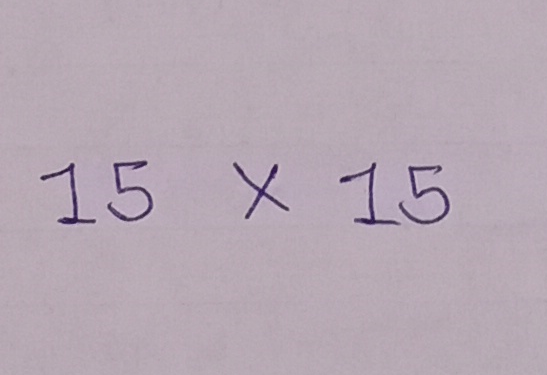 15 × 15